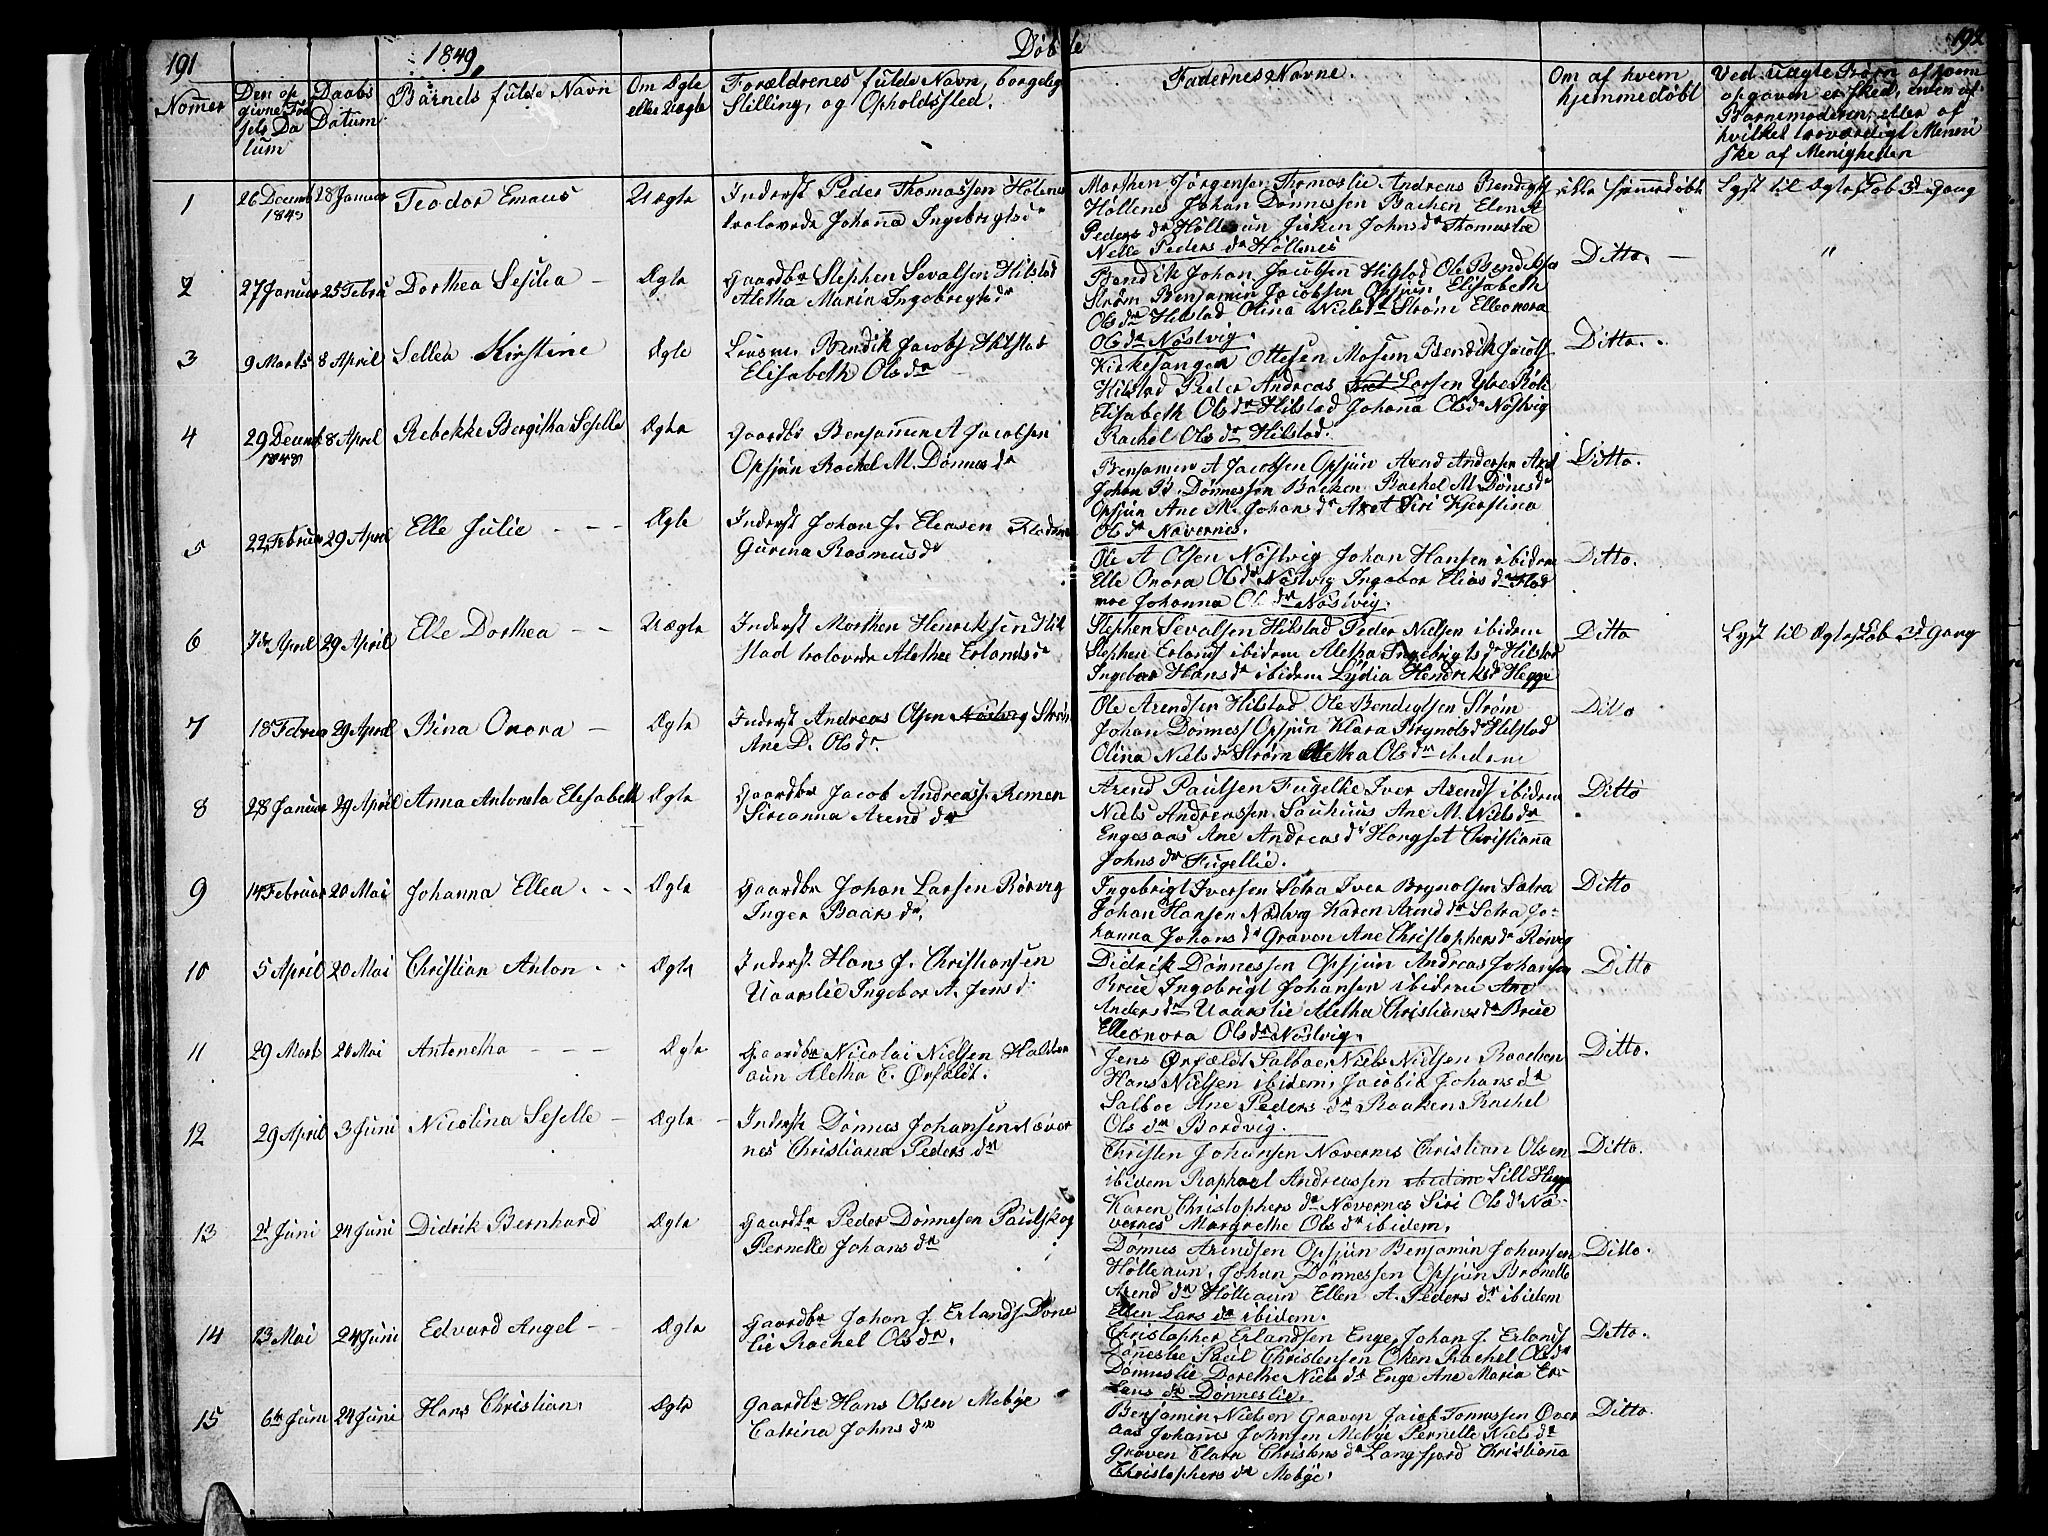 191
1849,
Døbte
192
Nomer
Den op
givne Fød
sels Da
tum
Daabs
Datum
Barnets fulde Navn
Om Ægte
eller Uægte
Forældrenes fulde Navn, borgelig
Stilling, og Opholdssted.
Faderne's Navne.
Om af hvem
hjemmedøbt
Ved uægte Børn af hvem
opgaven er sked, enten af
Barnemoderen, eller af
hvilket troværdigt Menni
ske af Menigheden
1
26 Decemb
28 Januar
Teodor Emaus
Uægte
Inderst Peder Thomassen Høllenes
trolovede Johana Ingebrigtsdr
Morthen Jørgensen Thomaslie Andreas Bendigts
Høllenes Johan Dønnessen Bachen Elen A
Pedersdr Hølleaun Johnsdr Thomaslie
Nelle Pedersdr Høllenes
ikke hjemmedøbt
Lyst til Ægteskab 3d Gang
2
27 Januar
25 Febru
Dorthea Sesilia
Ægte
Gaardbr Stephen Sevalsen Hilstad
Aletha Marin Ingebrigtsdr
Bendik Johan Jacobsen Hilstad Ole Bendiksen
Strøm Benjamin Jacobsen Opsjün Elisabeth
Olsdr Hilstad Olina Nielsdr Strøm Elleonora
Olsdr Nøstvig.
Ditto.
"
3
9 Marts
8 April
Sellea Kirstine
Ægte
Bendik Jacobs Hilstad
Elisabeth Olsdr
Kirkesanger Ottesen Mosum Bendik Jacobs
Hilstad Peder Andreas Larsen Ytre
Elisabeth Olsdr Hilstad Johana Olsdr Nøstvig
Rachel Olsdr Hilstad.
Ditto.
4
29 Decemb
1848
8 April
Rebekke Bergitha Seselle
Ægte
Gaardbr Benjamin A Jacobsen
Opsjün Rachel M. Dønnesdr
Benjamin A Jacobsen Opsjün Arend Andersen
Johan Dønnessen Backen Rachel M Dønesdr
Opsjün Ane M. Johansdr Siri Kjerstina
Olsdr Nævernes.
Ditto.
5
22 Februar
29 April
Elle Julie
Ægte
Inderst Johan J. Eleasen
Gurina Rasmusdr
Ole A Olsen Nøstvig Johan Hansen ibidem
Elle Onora Olsdr Nøstvig Ingebor Eliasdr Flod
moe Johanna Olsdr Nøstvig.
Ditto.
6
April
29 April
Elle Dorthea
Uægte
Inderst Morthen Henriksen Hil
stad trolovede Alethea Erlandsdr
Stephen Sevalsen Hilstad Peder Nielsen ibidem
Stephen Erlands ibidem Aletha Ingebrigtsdr Hilstad
Ingebor Hansdr ibidem Lydia Hendriksdr Hegge
Ditto
Lyst til Ægteskab 3d Gang
7
18 Febru
29 April
Bina Onora
Ægte
Inderst Andreas Olsen Nøstvig Strøm
Ane D. Olsdr.
Ole Arendsen Hilstad Ole Bendigtsen Strøm
Johan Dønness Opsjün Klara Brynolsdr Hilstad
Olina Nielsdr Strøm Aletha Olsdr ibidem
Ditto
8
28 Januar
29 April
Anna Antoneta Elisabeth
Ægte
Gaardbr Jacob Andreass. Remen
Sireanna Arendsdr
Arend Paulsen Fugellie Iver Arends ibidem
Niels Andreassen Ane M. Nielsdr
Engesaas Ane Andreasdr Hongset Christiana
Johnsdr Fugellie.
Ditto
9
14 Februar
20 Mai
Johanna Ellea
Ægte
Gaardbr Johan Larsen Rørvig
Inger Baarsdr.
Ingebrigt Iversen Sætra Iver Brynolsen Sætra
Johan Hansen Nøstvig Karen Arendsdr Sætra Jo-
hanna Johansdr Graven Ane Christophersdr Rørvig
Ditto
10
5 April
20 Mai
Christian Anton
Ægte
Inderst. Hans J. Christiansen
Uaarslie Ingebor A. Jensd.
Didrik Dønnessen Opsjün Andreas Johansen
Brüe Ingebrigt Johansen ibidem Ane
Andersdr Uaarslie Aletha Christiansdr Brüe
Elleonora Olsdr Nøstvig.
Ditto
11
29 Mart
20 Mai
Antenetha
Ægte
Gaardbr Nicolai Nielsen
aun Aletha C. Ørfaldt.
Jens Ørfaldt Salboe Niels Nielsen
Hans Nielsen ibidem, Jacobia Johansdr
Salboe Ane Pedersdr Rachel
Olsdr Bordvig.
Ditto.
12
29 April
3 Juni
Nicolina Seselle
Ægte
Inderst Dønnes Johansen Næver
nes Christiana Pedersdr
Christen Johansen Nævernes Christian Olsen
ibidem Raphael Andreassen
Karen Christophersdr Nævernes Siri Olsdr Næ-
vernes Margrethe Olsdr ibidem.
Ditto.
13
2d Juni
24 Juni
Didrik Bernhard
Ægte
Gaardbr Peder Dønnesen Paulskog
Pernelle Johansdr
Dønnes Arendsen Opsjün Benjamin Johansen
Hølleaun, Johan Dønnessen Opsjün
Arendsdr Hølleaun Ellen A. Pedersdr ibidem
Ellen Larsdr ibidem.
Ditto.
14
23 Mai
24 Juni
Edvard Angel
Ægte
Gaardbr Johan J. Erlands. Døne
lie Rachel Olsdr.
Christopher Erlandsen Enge, Johan J. Erlands
Døneslie Paul Christensen Rachel Olsdr
Dønneslie Dorethe Nielsdr Enge Ane Maria Er-
lansdr Dønneslie.
Ditto.
15
6te Juni
24 Juni
Hans Christian
Ægte
Gaardbr Hans Olsen Mebÿe
Catrina Johnsdr
Benjamin Nielsen Graven Jacob Tomassen Over
aas Johans Johnsen Mebÿe Pernelle Nielsdr
Graven Clara Christensdr Langfjord Christianna
Christophersdr Mebÿe.
Ditto.